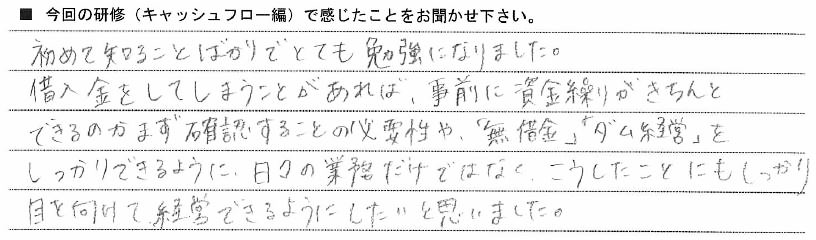 ■ 今回の研修（キャッシュフロー編）で感じたことをお聞かせ下さい。
初めて知ることばかりでとても勉強になりました。
借入金をしてしまうことがあれば、事前に資金繰りがきちんと
できるのかまず確認することの必要性や、「無借金」「ダム経営」を
しっかりできるように、日々の業務だけではなく、こうしたことにもしっかり
目を向けて経営できるようにしたいと思いました。